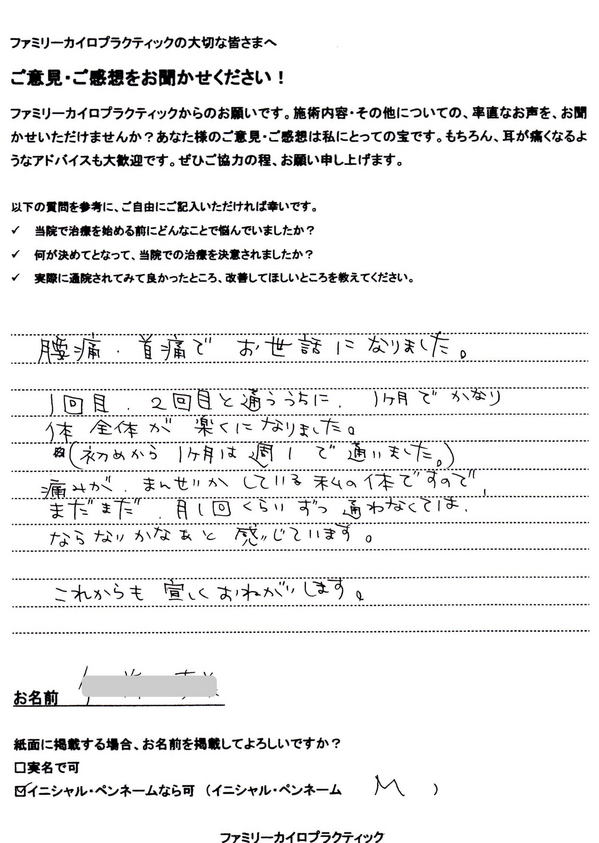 ファミリーカイロプラクティックの大切な皆さまへ
ご意見・ご感想をお聞かせください！
ファミリーカイロプラクティックからのお願いです。施術内容・その他についての、率直なお声を、お聞
かせいただけませんか？あなた様のご意見・ご感想は私にとっての宝です。もちろん、耳が痛くなるよ
うなアドバイスも大歓迎です。ぜひご協力の程、お願い申し上げます。
以下の質問を参考に、ご自由にご記入いただければ幸いです。
✓ 当院で治療を始める前にどんなことで悩んでいましたか？
✓ 何が決めてとなって、当院での治療を決意されましたか？
✓ 実際に通院されてみて良かったところ、改善してほしいところを教えてください。
腰痛．首痛で お世話になりました。
1回目．2回目と通ううちに．1ヶ月でかなり
体 全体が 楽くになりました。
(初めから1ヶ月は週1で通いました。)
痛みが．まんせいかしている私の体ですので、
まだまだ．月1回くらいずつ 通わなくては．
ならないかなぁと 感じています。
これからも 宜しくおねがいします。
お名前
紙面に掲載する場合、お名前を掲載してよろしいですか？
□実名で可
☑イニシャル・ペンネームなら可（イニシャル・ペンネーム M ）
ファミリーカイロプラクティック